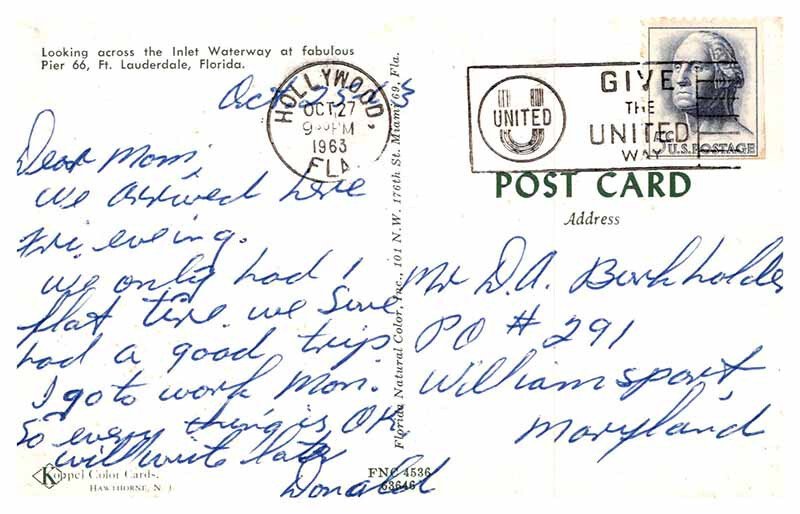 Looking across the Inlet Waterway at fabulous
Pier 66, Ft. Lauderdale, Florida.
Oct
HOLLYWOOD,
OCT 27
9 PM
1963
FLA.
UNITED
GIVE
THE
UNITED
WAY
U.S. POSTAGE
POST CARD
Address
Dear Mom,
We arrived here
Fri. eveing.
We only had 1
flat tire. we sure
had a good trip.
I go to work Mon.
So every thing is OK
will write later
Donald
Mr D.A. Burkholder
PO # 291
Williamsport
Maryland
Florida Natural Color, Inc., 101 N.W. 176th St. Miami 69, Fla.
Koppel Color Cards
HAWTHORNE, N. J.
FNC 4536
63646